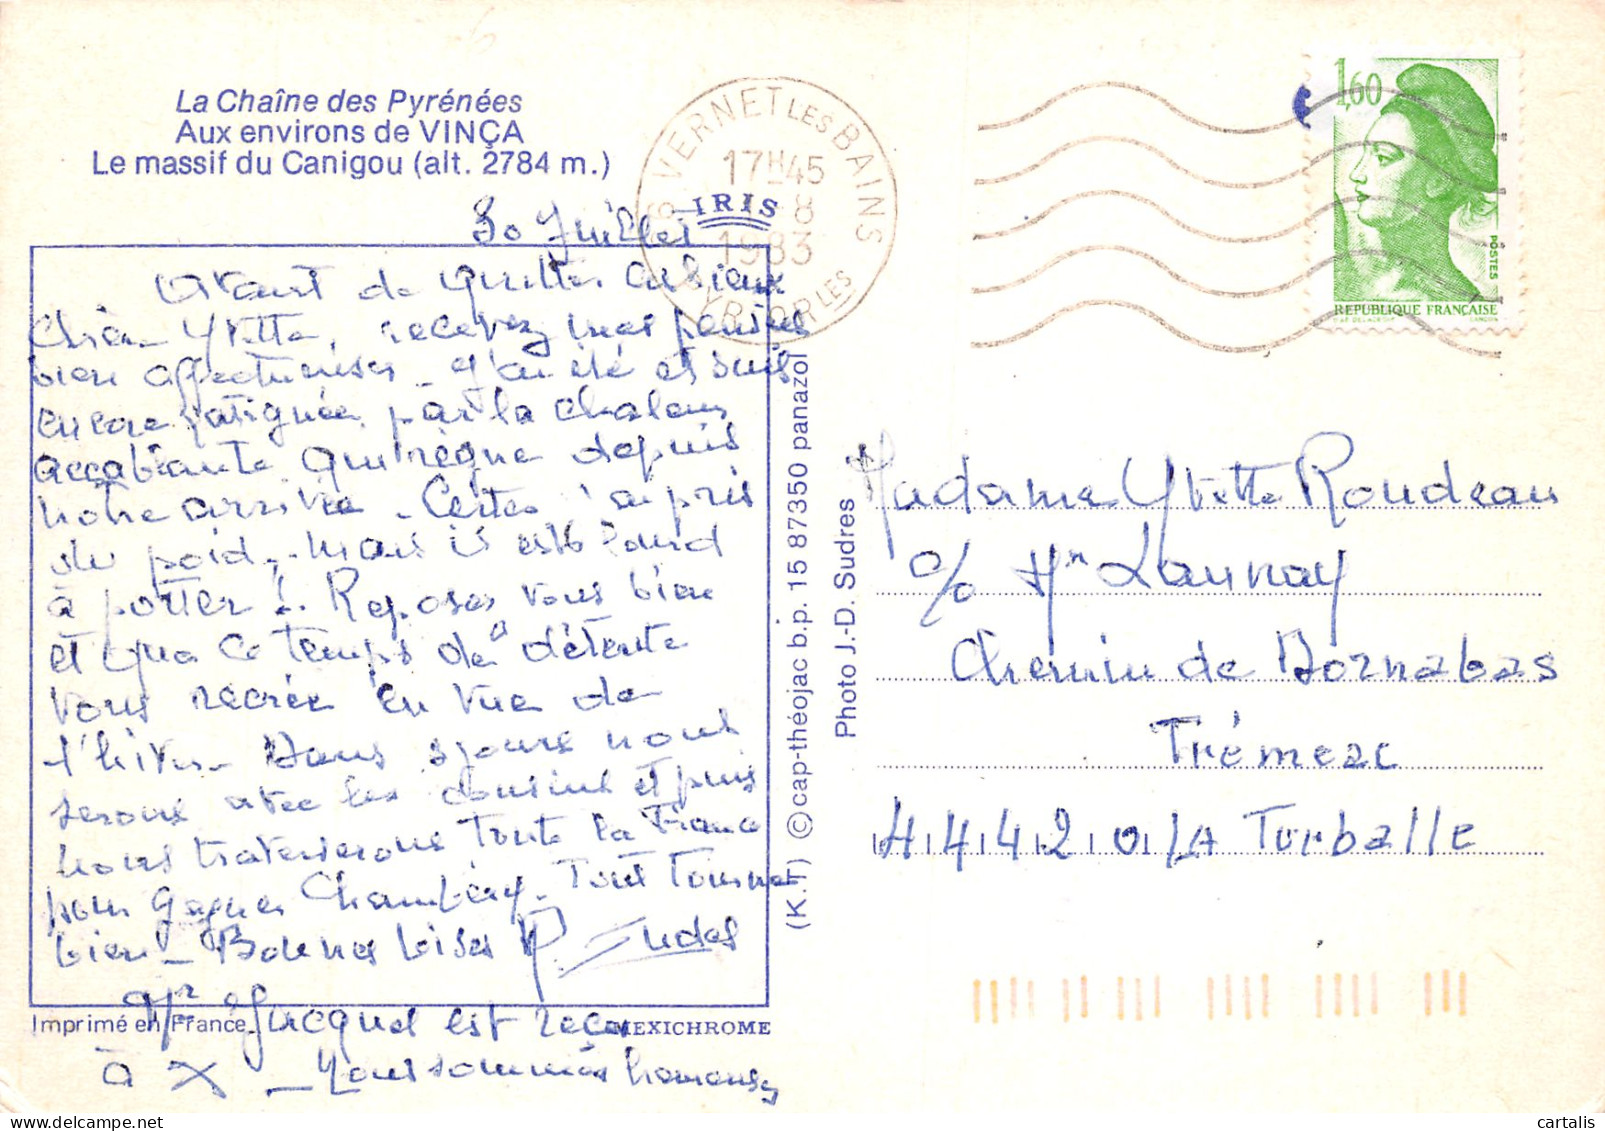 La Chaîne des Pyrénées
Aux environs de VINÇA
Le massif du Canigou (alt. 2784 m.)
IRIS
30 Juillet
Avant de quitter
Chère Yvette, recevez mes pensées
bien affectueuses. J'ai été et suis
encore fatiguée par la chaleur
accablante qui règne depuis
notre arrivée. Certes j'ai pris
du poids, mais il est lourd
à porter !. Reposez vous bien
et que ce temps de détente
vous recrée en vue de
l'hiver. Dans 3 jours nous
serons avec les cousins et puis
nous traverserons toute la France
pour gagner Chambéry. Tout Tourne
bien - Bonnes bises
P.S.
est reçu
à X - Nous sommes heureux
Imprimé en France
MEXICHROME
(K.T) © cap-théojac b.p. 15 87350 panazol
Photo J.-D. Sudres
66 VERNET LES BAINS
17H45
-8
1983
PYR. OR LES
1,60
POSTES
REPUBLIQUE FRANÇAISE
D'AP. DELACROIX GANDON
Madame Yvette Rondeau
c/o Mr Launay
Chemin de Bornabas
Trémerac
44420 LA Turballe
cartalis